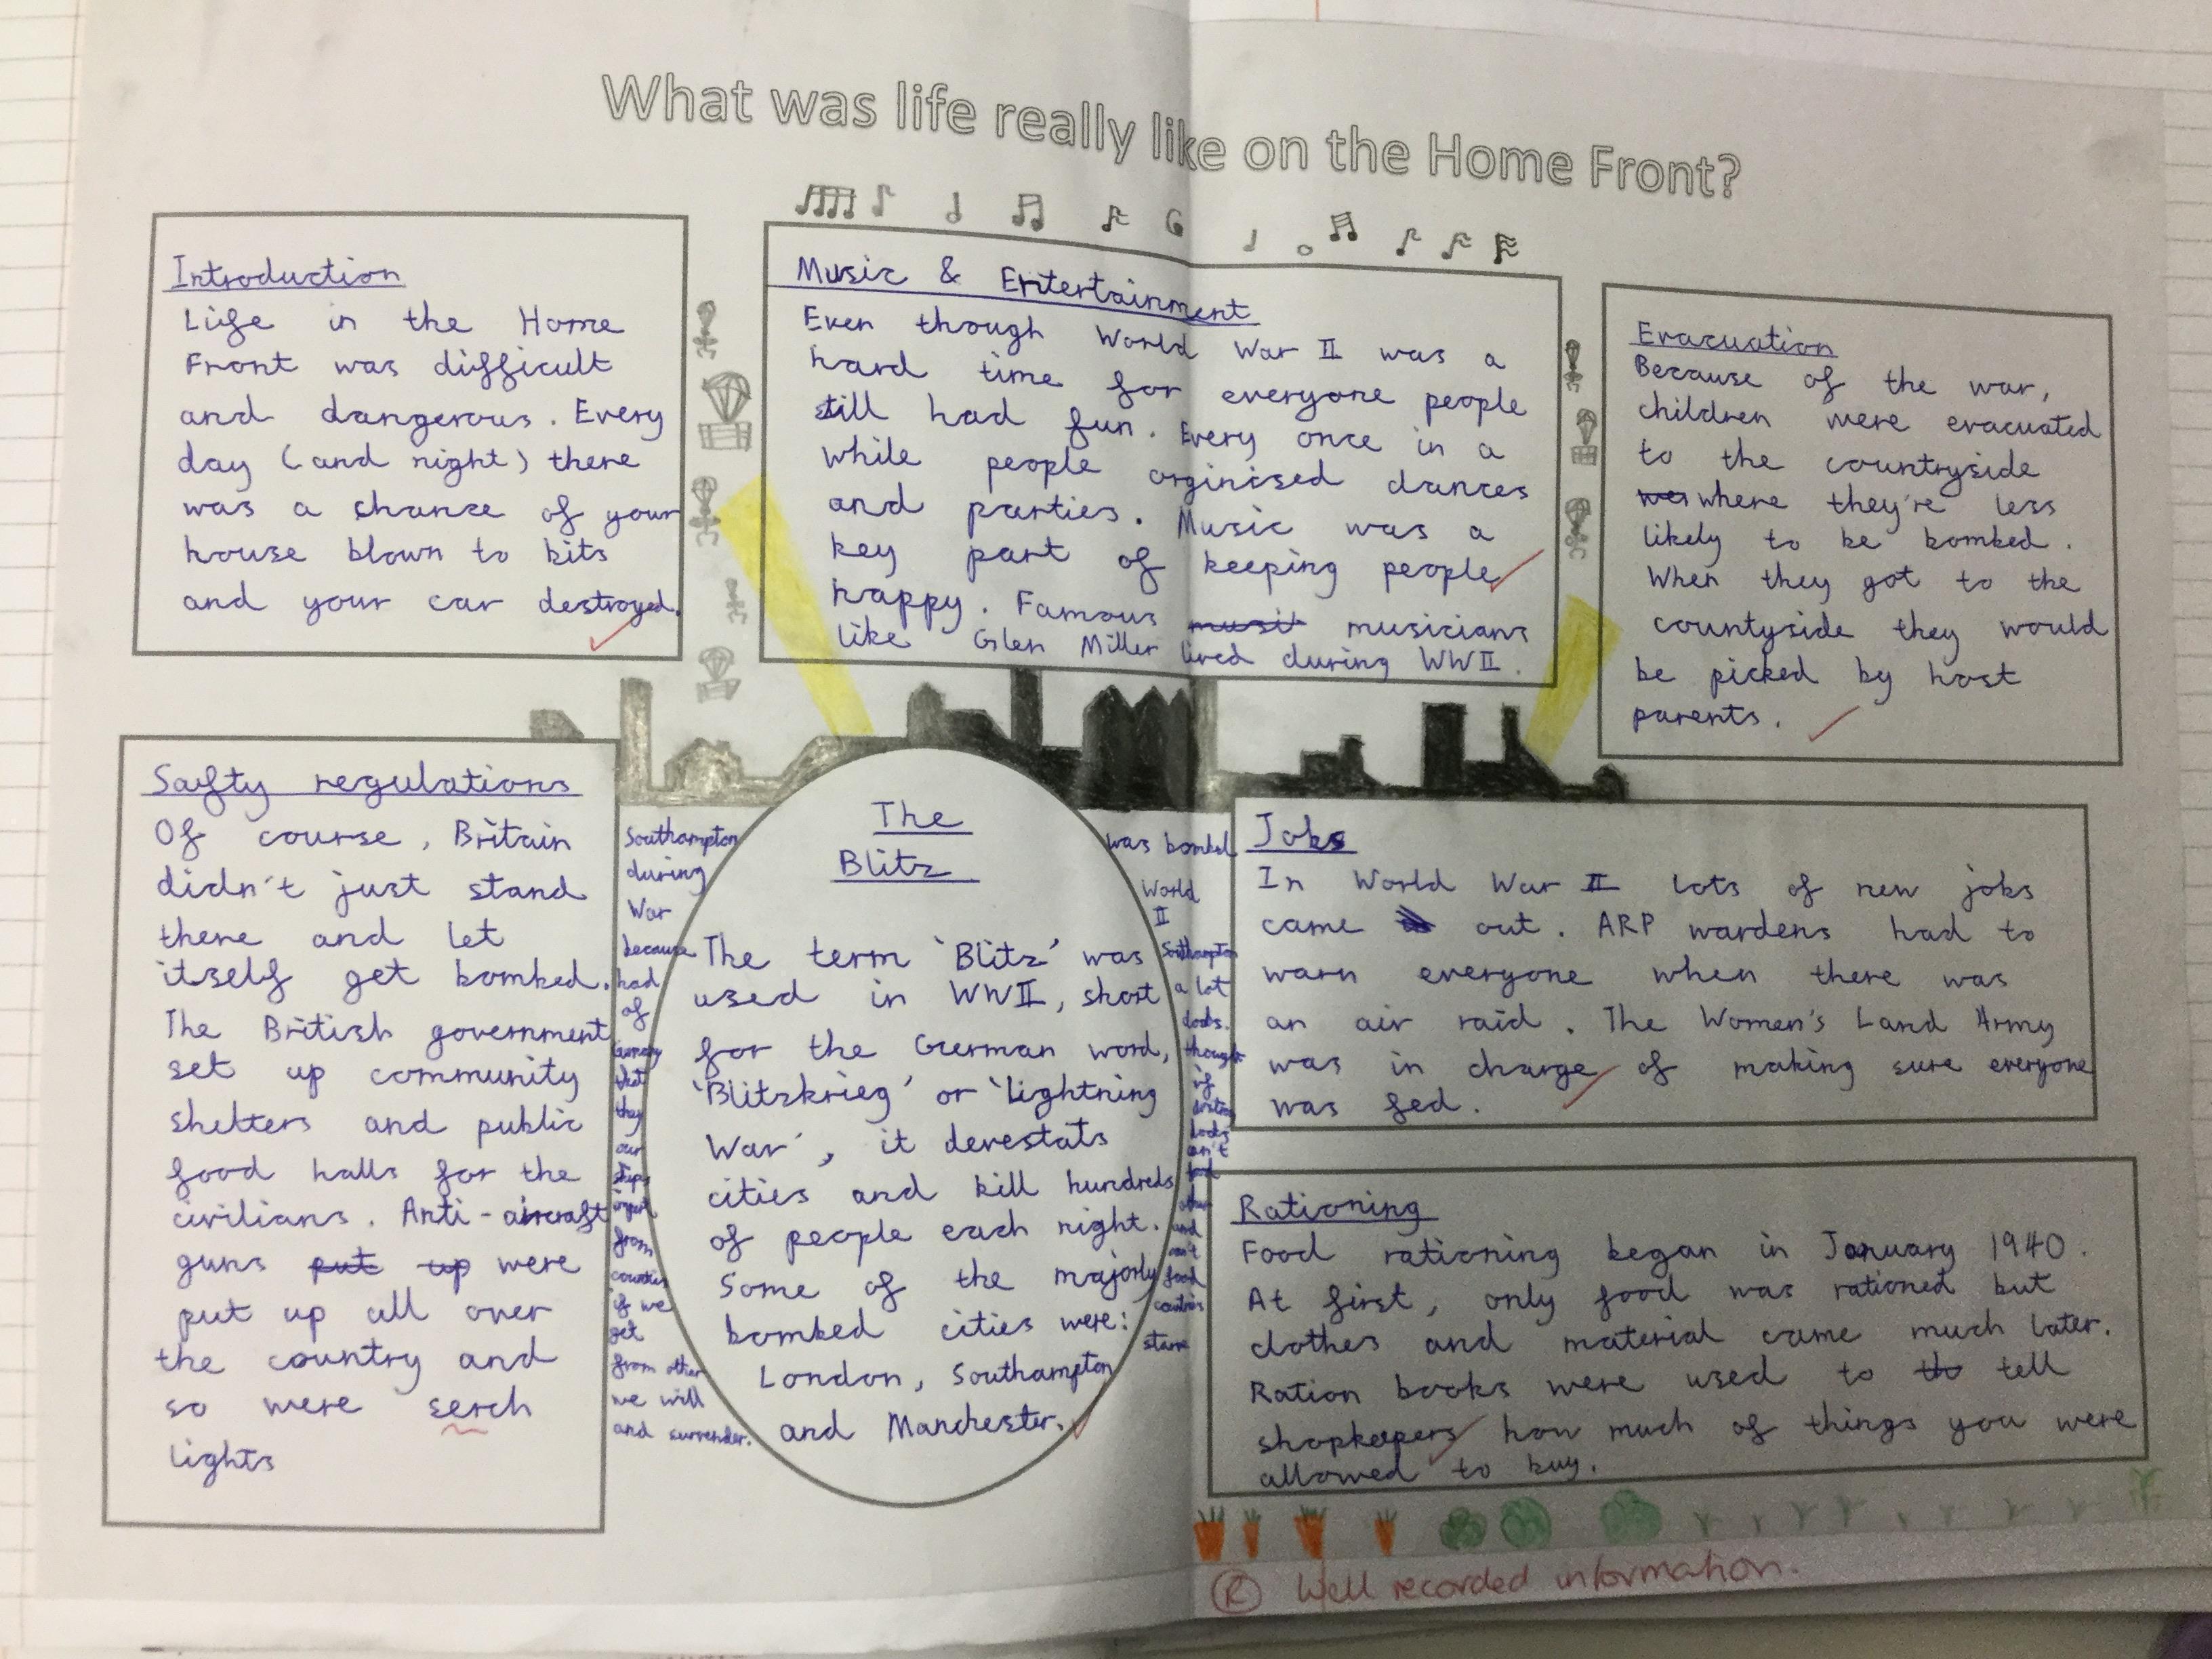 What was life really like on the Home Front?
Introduction
Life in the Home
Front was difficult
and dangerous. Every
day (and night) there
was a chance of your
house blown to bits
and your car destroyed.
Music & Entertainment
Even though World War II was a
hard time for everyone people
still had fun. Every once in a
while people orginised dances
and parties. Music was a
key part of keeping people
happy. Famous musit musicians
like Glen Miller lived during WWII.
Evacuation
Because of the war,
children were evacuated
to the countryside
wer where they're less
likely to be bombed.
When they got to the
countyside they would
be picked by host
parents.
Safty regulations
Of course, Britain
didn't just stand
there and let
itself get bombed.
The British government
set up community
shelters and public
food halls for the
civilians. Anti-aircraft
guns put up were
put up all over
the country and
so were serch
lights
Southampton was bombed
during World
War II
because Southampton
had a lot
of docks.
Germany thought
that if
they destroy
our docks
ships can't
import food
from other
countries and
if we can't
get food
from other countries
we will starve
and surrender.
The
Blitz
The term 'Blitz' was
used in WWII, short
for the German word,
'Blitzkrieg' or 'lightning
War', it devestats
cities and kill hundreds
of people each night.
Some of the majorly
bombed cities were:
London, Southampton
and Manchester.
Jobs
In World War II lots of new jobs
came out. ARP wardens had to
warn everyone when there was
an air raid. The Women's Land Army
was in charge of making sure everyone
was fed.
Rationing
Food rationing began in January 1940.
At first, only food was rationed but
clothes and material came much later.
Ration books were used to tho tell
shopkeepers how much of things you were
allowed to buy.
R Well recorded information.